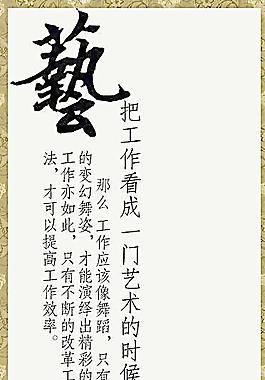 藝
把工作看成一门艺术的时候
那么工作应该像舞蹈，只有
的变幻舞姿，才能演绎出精彩的
工作亦如此，只有不断的改革工
法，才可以提高工作效率。